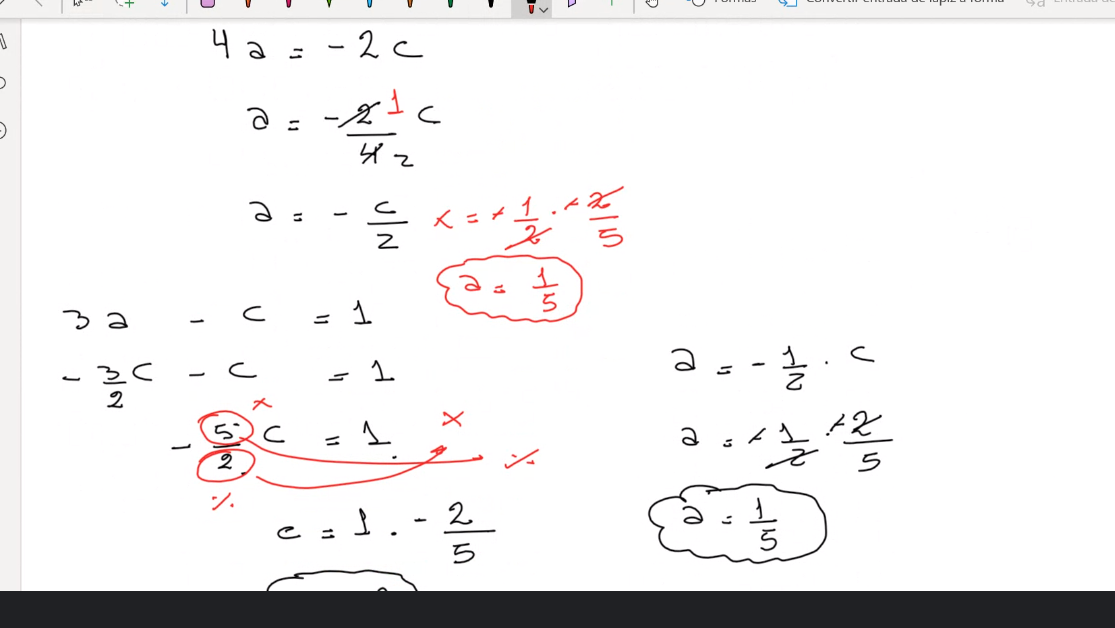 Formas Convertir entrada de lápiz a forma
4a = -2c
a = -2/4 1/2 c
a = - c/2
x = - 1/2 . - 2/5
a = 1/5
3a - c = 1
- 3/2 c - c = 1
- 5/2 c = 1.
x x
% %
c = 1 . - 2/5
a = - 1/2 . c
a = - 1/2 . - 2/5
a = 1/5